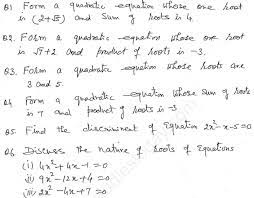 Q1 Form a quadratic equation whose one root
is (2+√5) and sum of roots is 4.
Q2. Form a quadratic equation whose one root
is √7+2 and product of roots is -3.
Q3. Form a quadratic equation whose roots are
3 and 5
Q4 Form a quadratic equation whose sum of roots
is 7 and product of roots is -3
Q5 Find the discriminent of Equation 2x²-x-5=0
Q6 Discuss the nature of roots of Equations
(i) 4x²+4x-1=0
(ii) 9x²-12x+4=0
(iii) 2x²-4x+7=0